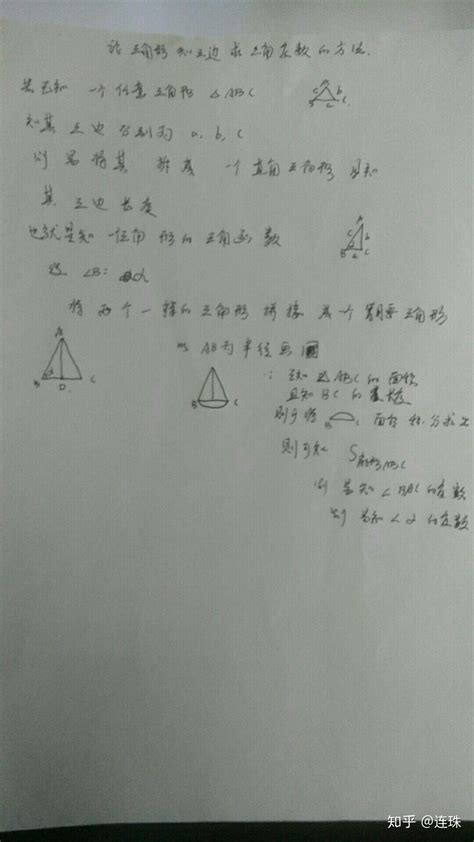 论三角形知三边求三角度数的方法.
若已知 一个任意三角形 △ABC
A c b B a C
知其三边分别为 a, b, c
则易将其 拆成 一个直角三角形 且知
其三边长度
也就是知一任角形的三角函数
A c b B a C
设 ∠B: α
将两个一样的三角形拼接成一个等腰三角形
A B D C
以AB为半径画圆
A B C
: 已知 △ABC 的面积
且知 BC 的长度
则可将 B C 面积 积分求出
则可知 S扇形ABC
则 易知 ∠BAC 的度数
则 易知 ∠α 的度数
知乎 @连珠